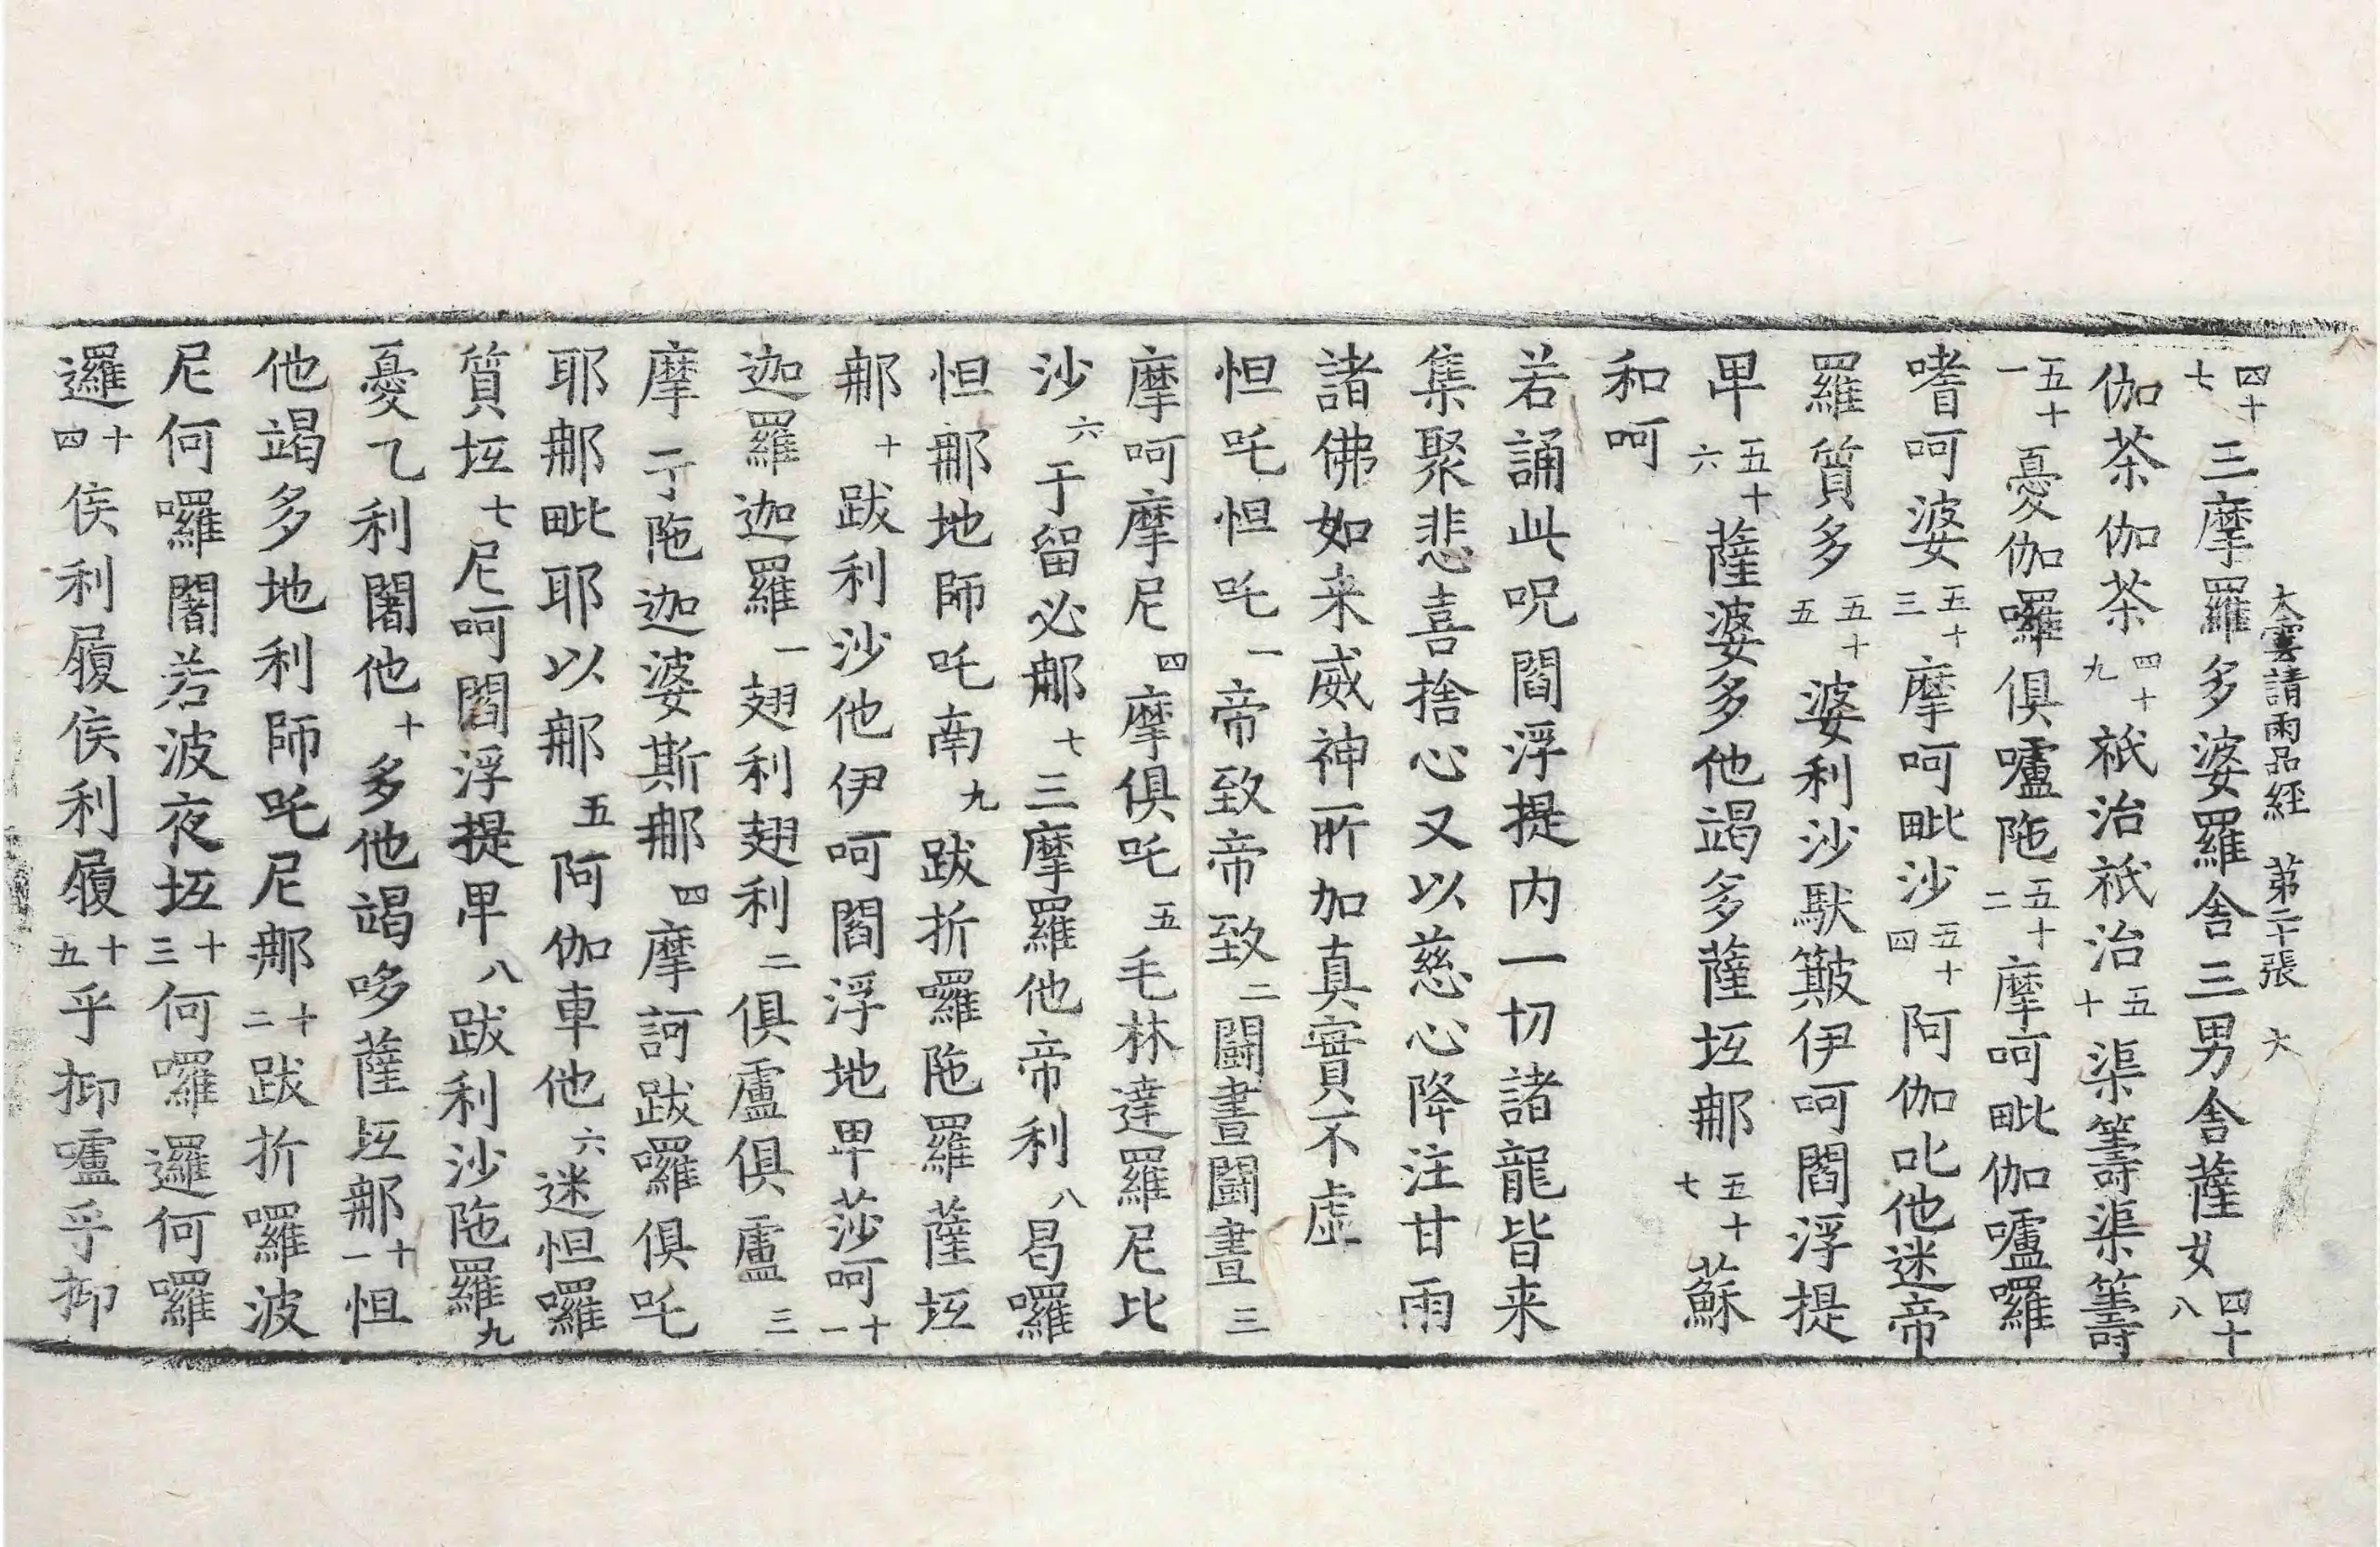 大雲請雨品經　第二十張　大
四十七三摩羅多婆羅舍三男舍薩女四十八
伽茶伽茶四十九祇治祇治五十渠籌渠籌
五十一憂伽囉俱嚧陁五十二摩呵毗伽嚧囉
嗜呵婆五十三摩呵毗沙五十四阿伽叱他迷帝
羅質多五十五婆利沙馱簸伊呵閻浮提
甲五十六薩婆多他竭多薩坘那五十七蘇
和呵
若誦此呪閻浮提内一切諸龍皆来
集聚悲喜捨心又以慈心降注甘雨
諸佛如来威神所加真實不虛
怛吒怛吒一帝致帝致二闘晝闘晝三
摩呵摩尼四摩俱吒五毛林達羅尼比
沙六于留必那七三摩羅他帝利八曷囉
怛那地師吒南九跋折囉陁羅薩坘
那十跋利沙他伊呵閻浮地甲莎呵十一
迦羅迦羅一翅利翅利二俱盧俱盧三
摩亍陁迦婆斯那四摩訶跋囉俱吒
耶那毗耶以那五阿伽車他六迷怛囉
質坘七尼呵閻浮提甲八跋利沙陁羅九
憂乙利闍他十多他竭哆薩坘那十一怛
他竭多地利師吒尼那十二跋折囉波
尼何囉闍若波夜坘十三何囉邏何囉
邏十四侯利履侯利履十五乎抑嚧乎抑